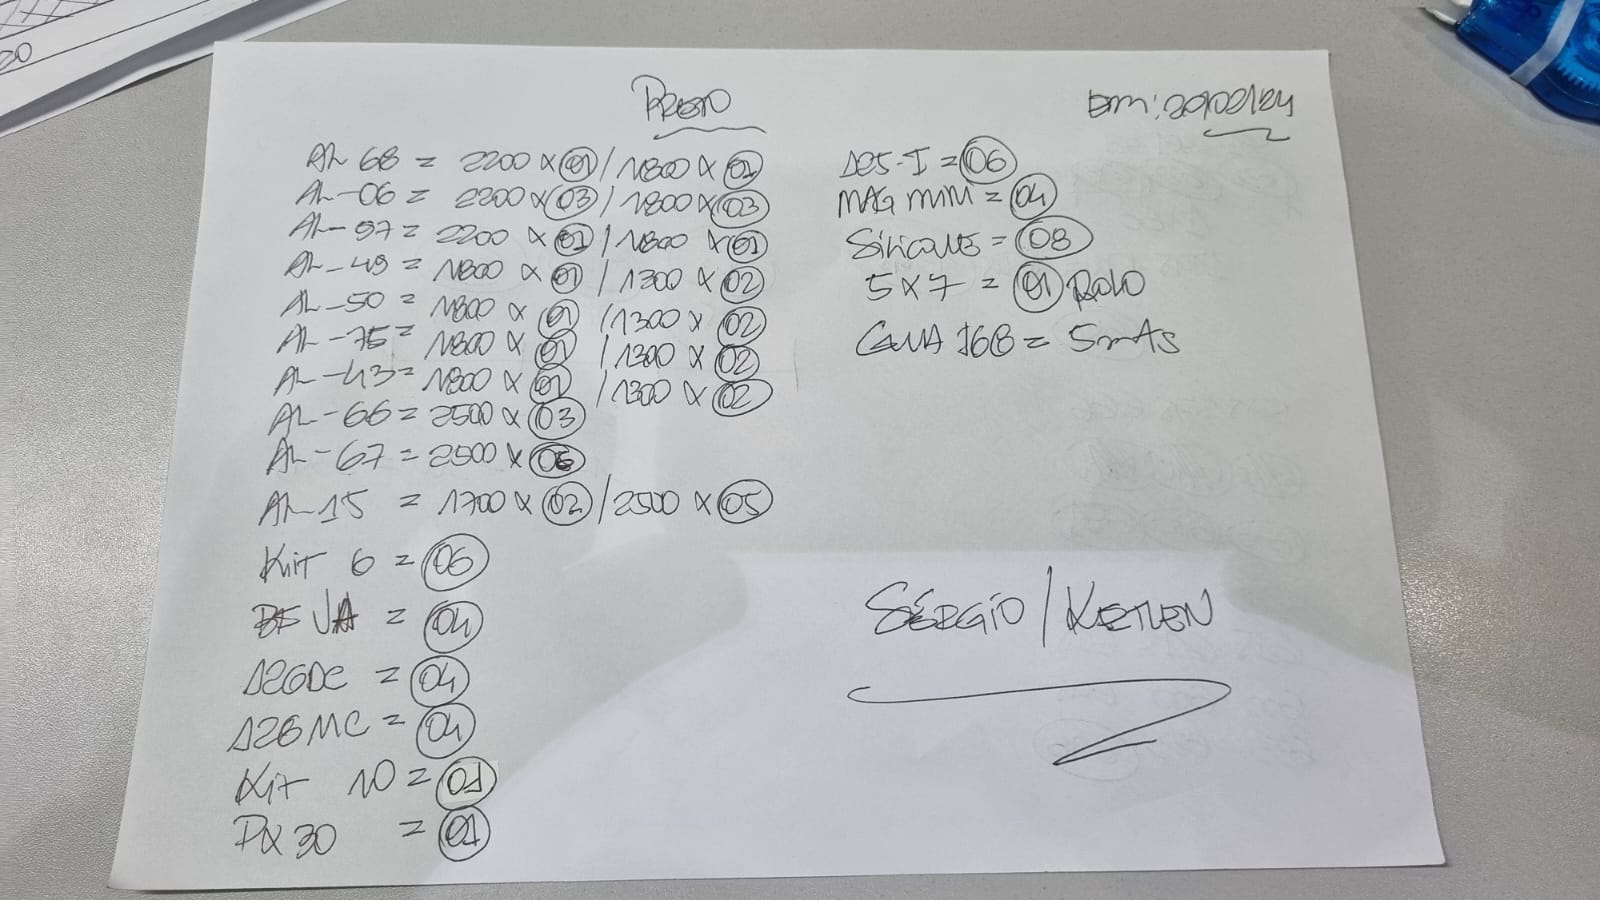 PRETO
Em: 20/02/24
AL 68 = 2200 x 01 / 1800 x 01
AL-06 = 2200 x 03 / 1800 x 03
AL-97 = 2200 x 01 / 1800 x 01
AL-49 = 1800 x 01 / 1300 x 02
AL-50 = 1800 x 01 / 1300 x 02
AL-75 = 1800 x 01 / 1300 x 02
AL-43 = 1800 x 01 / 1300 x 02
AL-66 = 2500 x 03
AL-67 = 2500 x 06
AL-15 = 1700 x 02 / 2500 x 05
Kit 6 = 06
VA = 04
126DC = 04
126 MC = 04
Kit 10 = 01
PX 30 = 01
125-I = 06
MAG MINI = 04
Silicone = 08
5 x 7 = 01 Rolo
GUIA 168 = 5mts
SÉRGIO / KETLEN
20